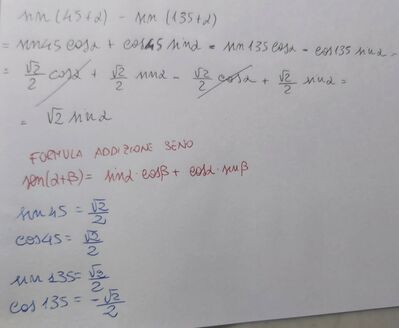 sen(45+α) - sen(135+α)
= sen45 cosα + cos45 sinα - sen135 cosα - cos135 sinα =
= √2/2 cosα + √2/2 sinα - √2/2 cosα + √2/2 sinα =
= √2 sinα
FORMULA ADDIZIONE SENO
sen(α+β) = sinα · cosβ + cosα · sinβ
sin45 = √2/2
cos45 = √2/2
sin135 = √2/2
cos135 = -√2/2